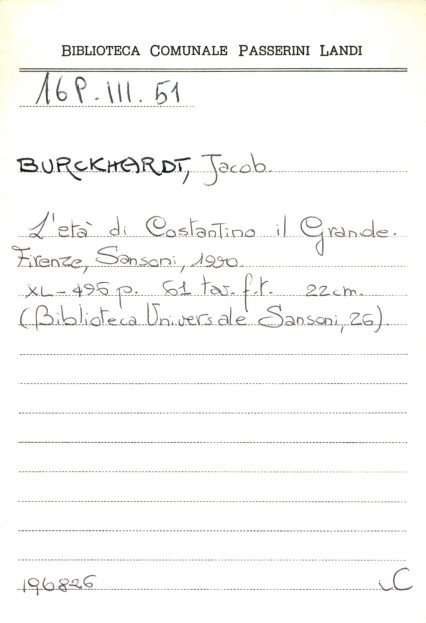 BIBLIOTECA COMUNALE PASSERINI LANDI
16 P. III. 51
BURCKHARDT, Jacob.
L'età di Costantino il Grande.
Firenze, Sansoni, 1990.
XL-495 p. 61 tav. f.t. 22 cm.
(Biblioteca Universale Sansoni, 26).
196826